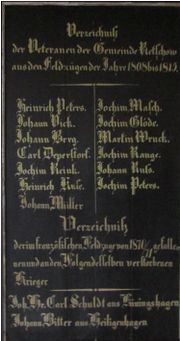 Verzeichniß
der Veteranen der Gemeinde Retschow
aus den Feldzügen der Jahre 1808 bis 1815.
Heinrich Peters.
Johann Vick.
Johann Berg.
Carl Deperstorf.
Jochim Reink.
Heinrich Kruse.
Johann Müller
Jochim Masch.
Jochim Glöde.
Martin Wruck.
Jochim Range.
Johann Russ.
Jochim Peters.
Verzeichniß
der im französischen Feldzuge von 1870/ gefalle-
nen und an den Folgen desselben verstorbenen
Krieger
Joh. Hr. Carl Schuldt aus Püningshagen
Johann Bitter aus Heiligenhagen